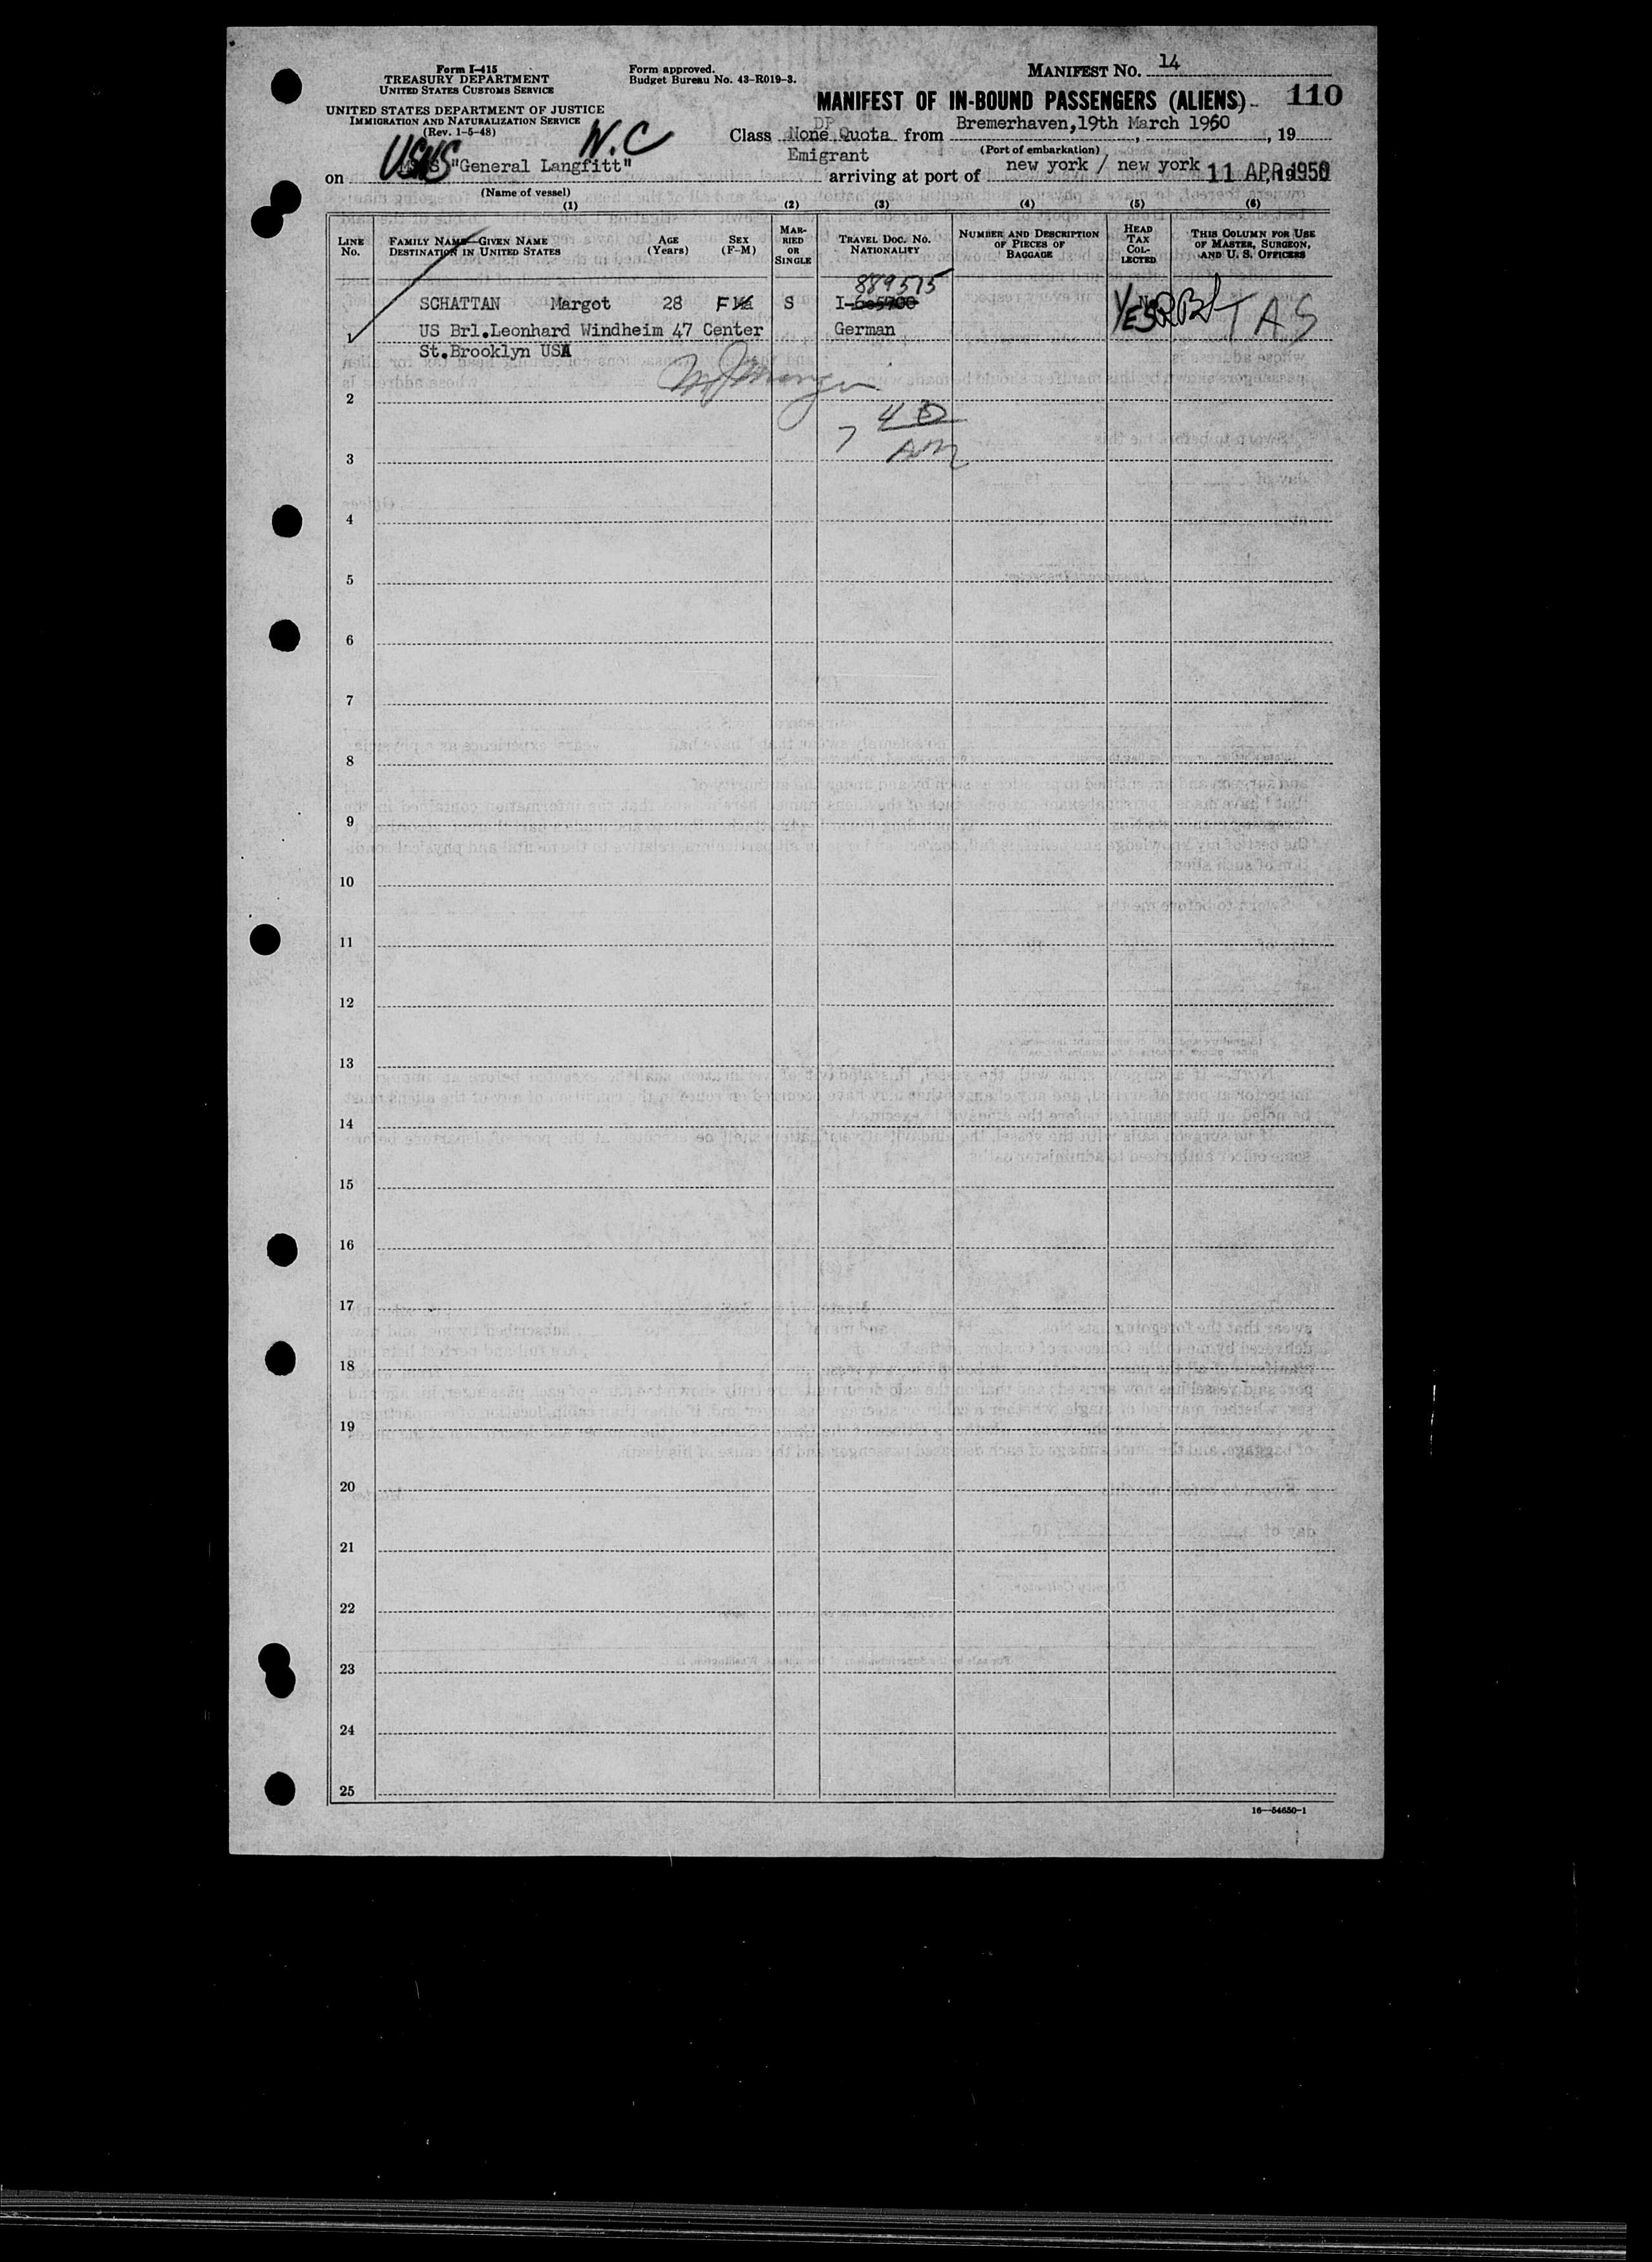 Form I-415
TREASURY DEPARTMENT
UNITED STATES CUSTOMS SERVICE
UNITED STATES DEPARTMENT OF JUSTICE
IMMIGRATION AND NATURALIZATION SERVICE
(Rev. 1-5-48)
Form approved.
Budget Bureau No. 43-R019-3.
MANIFEST NO. 14
MANIFEST OF IN-BOUND PASSENGERS (ALIENS) 110
DP
Class None Quota from Bremerhaven,19th March 1950, 19
Emigrant (Port of embarkation)
N.C
on USNS "General Langfitt" arriving at port of new york / new york 11 APR 1950
(Name of vessel)
(1) (2) (3) (4) (5) (6)
LINE NO.
FAMILY NAME—GIVEN NAME
DESTINATION IN UNITED STATES
AGE (Years)
SEX (F-M)
MARRIED OR SINGLE
TRAVEL DOC. NO.
NATIONALITY
NUMBER AND DESCRIPTION OF PIECES OF BAGGAGE
HEAD TAX COLLECTED
THIS COLUMN FOR USE OF MASTER, SURGEON, AND U. S. OFFICERS
889515
SCHATTAN Margot 28 F S I- YES TAS
1 US Brl.Leonhard Windheim 47 Center German
St.Brooklyn USA
2
3
4
5
6
7
8
9
10
11
12
13
14
15
16
17
18
19
20
21
22
23
24
25
16—54650-1